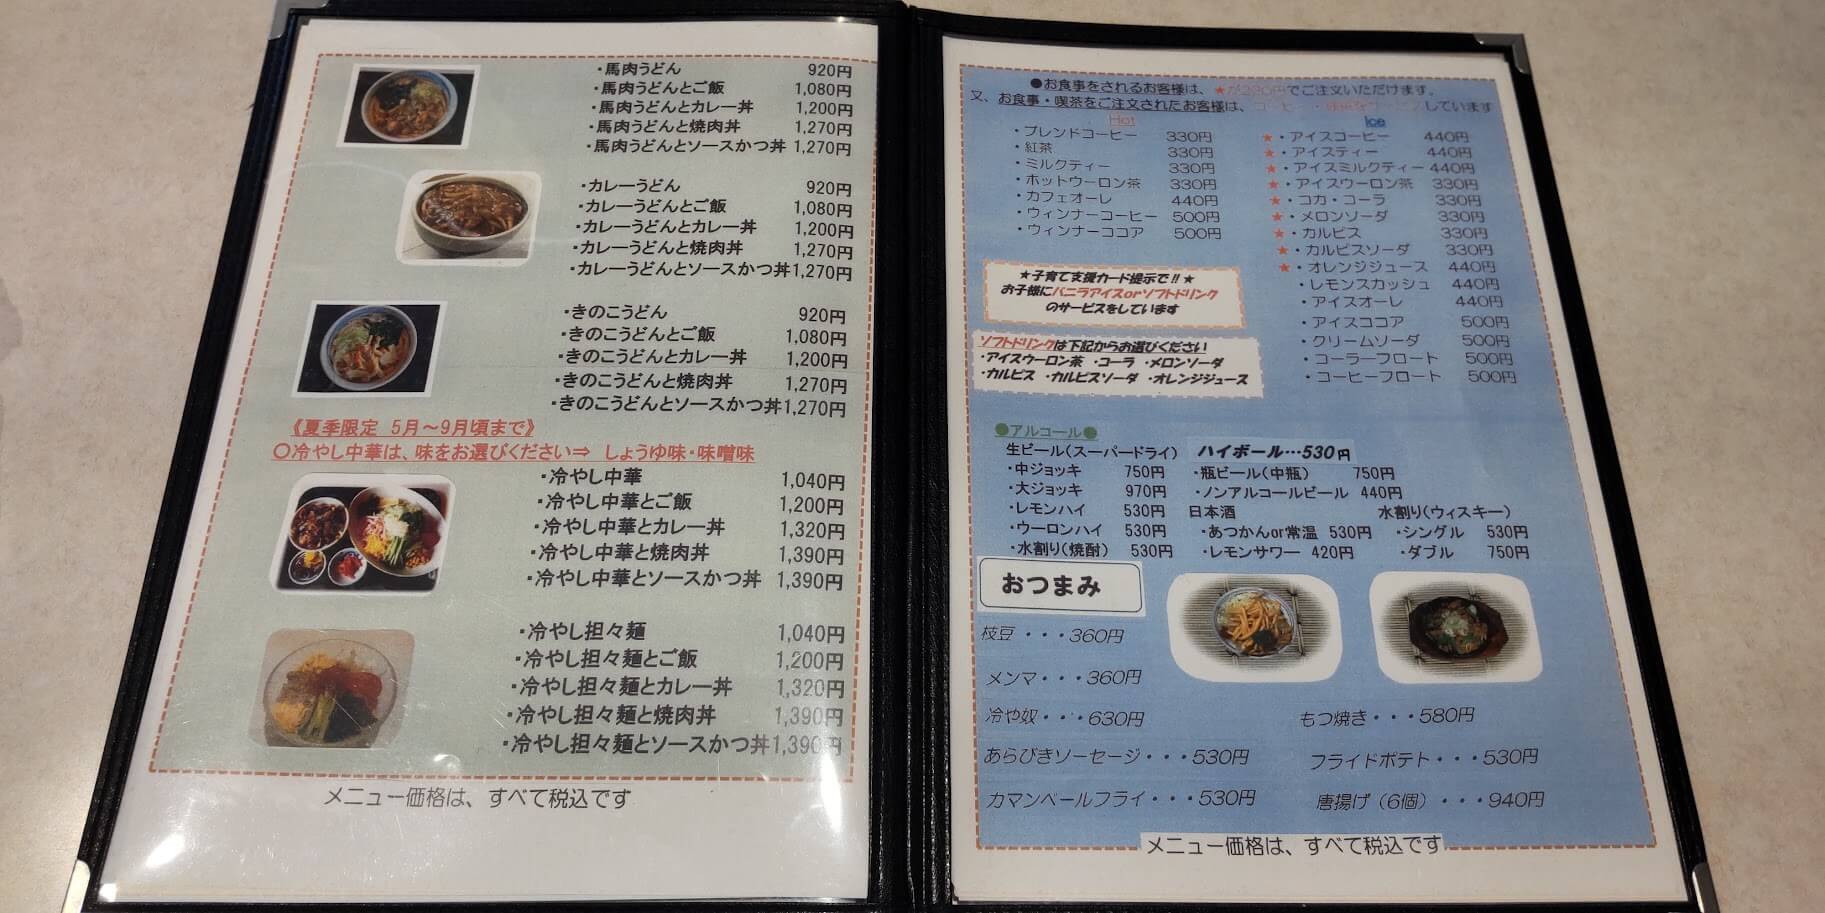 ・馬肉うどん 920円
・馬肉うどんとご飯 1,080円
・馬肉うどんとカレー丼 1,200円
・馬肉うどんと焼肉丼 1,270円
・馬肉うどんとソースかつ丼 1,270円
・カレーうどん 920円
・カレーうどんとご飯 1,080円
・カレーうどんとカレー丼 1,200円
・カレーうどんと焼肉丼 1,270円
・カレーうどんとソースかつ丼 1,270円
・きのこうどん 920円
・きのこうどんとご飯 1,080円
・きのこうどんとカレー丼 1,200円
・きのこうどんと焼肉丼 1,270円
・きのこうどんとソースかつ丼 1,270円
《夏季限定 5月～9月頃まで》
〇冷やし中華は、味をお選びください⇒ しょうゆ味・味噌味
・冷やし中華 1,040円
・冷やし中華とご飯 1,200円
・冷やし中華とカレー丼 1,320円
・冷やし中華と焼肉丼 1,390円
・冷やし中華とソースかつ丼 1,390円
・冷やし担々麺 1,040円
・冷やし担々麺とご飯 1,200円
・冷やし担々麺とカレー丼 1,320円
・冷やし担々麺と焼肉丼 1,390円
・冷やし担々麺とソースかつ丼 1,390円
メニュー価格は、すべて税込です
●お食事をされるお客様は、★が 円でご注文いただけます。
又、お食事・喫茶をご注文されたお客様は、 しています
Hot
・ブレンドコーヒー 330円
・紅茶 330円
・ミルクティー 330円
・ホットウーロン茶 330円
・カフェオーレ 440円
・ウィンナーコーヒー 500円
・ウィンナーココア 500円
Ice
★・アイスコーヒー 440円
★・アイスティー 440円
★・アイスミルクティー 440円
★・アイスウーロン茶 330円
★・コカ・コーラ 330円
★・メロンソーダ 330円
★・カルピス 330円
★・カルピスソーダ 330円
★・オレンジジュース 440円
・レモンスカッシュ 440円
・アイスオーレ 440円
・アイスココア 500円
・クリームソーダ 500円
・コーラーフロート 500円
・コーヒーフロート 500円
★子育て支援カード提示で!!★
お子様にバニラアイスorソフトドリンク
のサービスをしています
ソフトドリンクは下記からお選びください
・アイスウーロン茶 ・コーラ ・メロンソーダ
・カルピス ・カルピスソーダ ・オレンジジュース
●アルコール●
生ビール（スーパードライ）
・中ジョッキ 750円
・大ジョッキ 970円
・レモンハイ 530円
・ウーロンハイ 530円
・水割り（焼酎） 530円
ハイボール…530円
・瓶ビール（中瓶） 750円
・ノンアルコールビール 440円
日本酒
・あつかんor常温 530円
・レモンサワー 420円
水割り（ウィスキー）
・シングル 530円
・ダブル 750円
おつまみ
枝豆・・・360円
メンマ・・・360円
冷や奴・・・630円
もつ焼き・・・580円
あらびきソーセージ・・・530円
フライドポテト・・・530円
カマンベールフライ・・・530円
唐揚げ（6個）・・・940円
メニュー価格は、すべて税込です